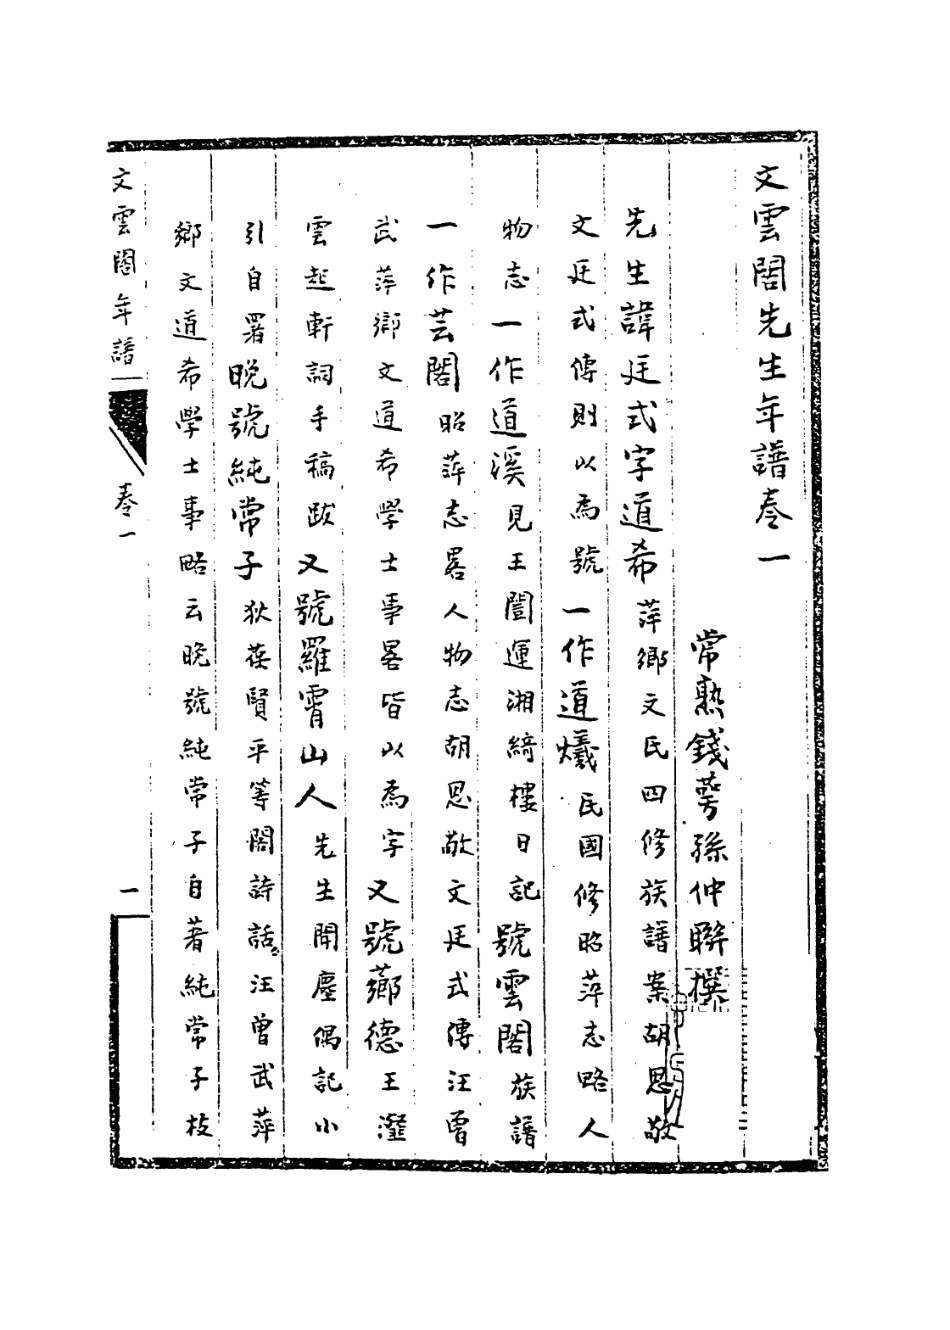 文雲閣先生年譜卷一
常熟錢萼孫仲聯撰
先生諱廷式字道希萍鄉文氏四修族譜案胡思敬
文廷式傳則以為號一作道爔民國修昭萍志略人
物志一作道溪見王闓運湘綺樓日記號雲閣族譜
一作芸閣昭萍志畧人物志胡思敬文廷式傳汪曾
武萍鄉文道希學士事畧皆以為字又號薌德王瀣
雲起軒詞手稿跋又號羅霄山人先生聞塵偶記小
引自署晚號純常子狄葆賢平等閣詩話汪曾武萍
鄉文道希學士事略云晚號純常子自著純常子枝
文雲閣年譜 卷一 一